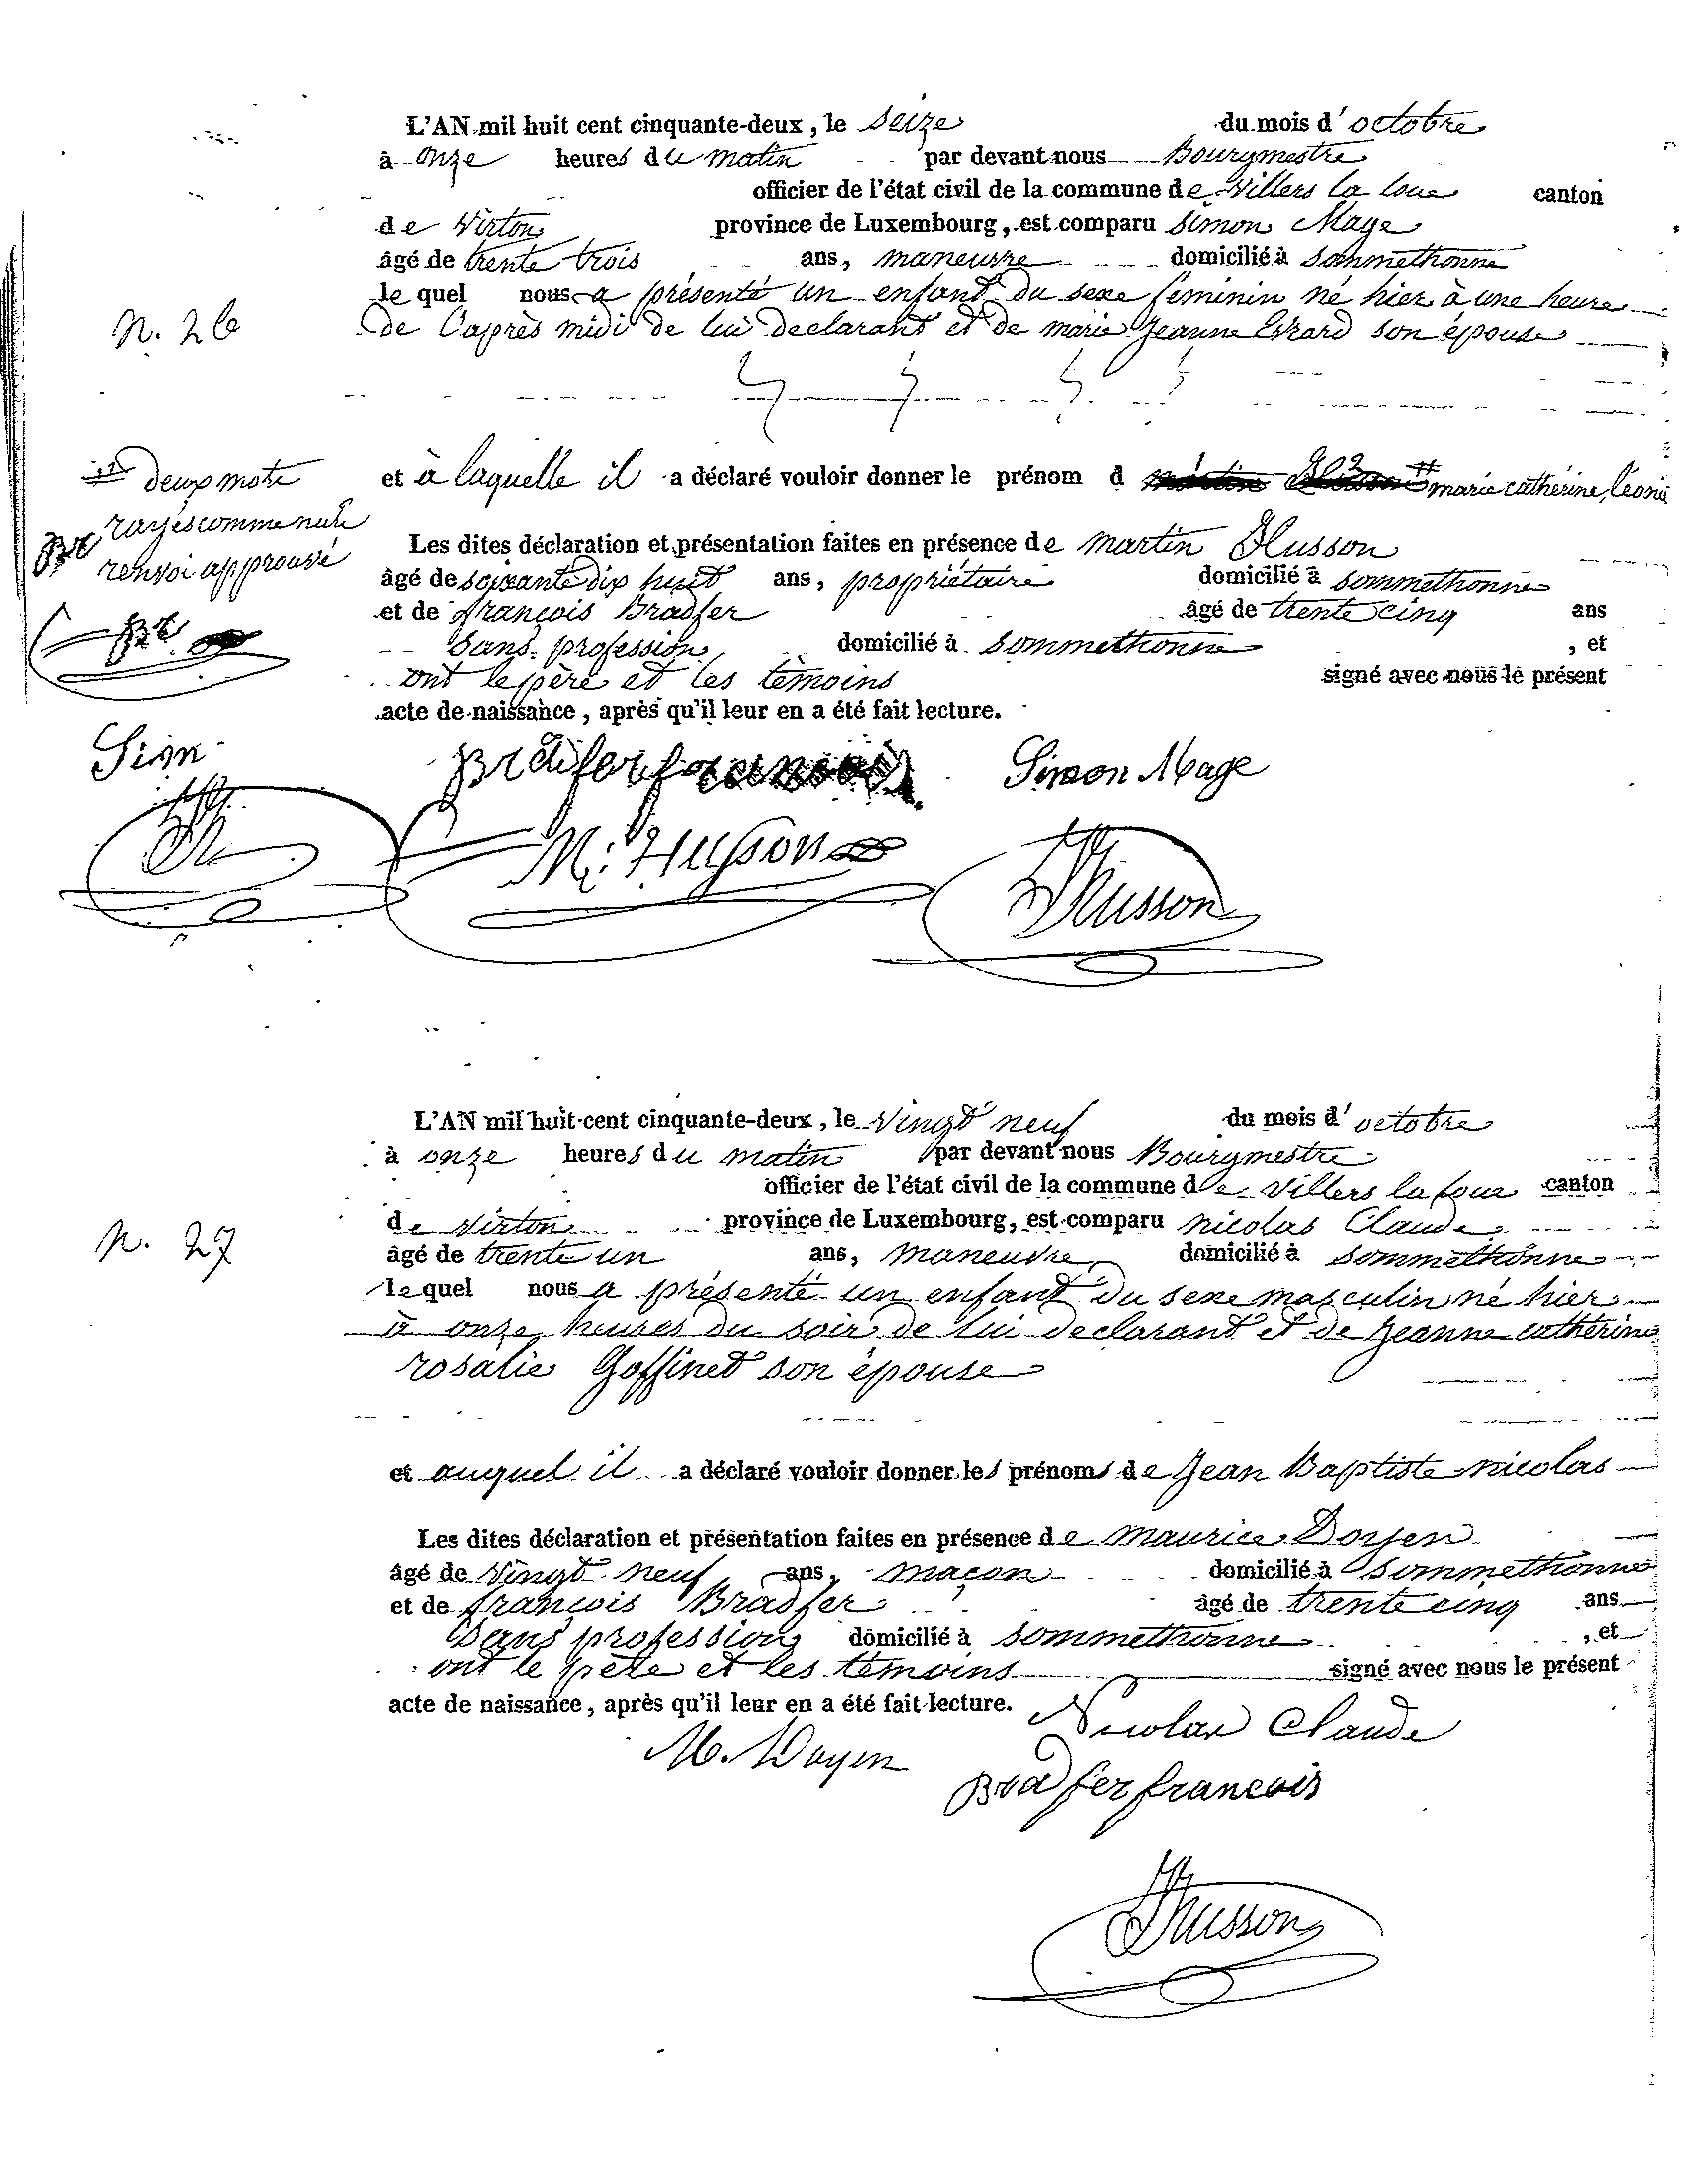 L'AN mil huit cent cinquante-deux, le seize du mois d'octobre
à onze heures du matin par devant nous Bourgmestre
officier de l'état civil de la commune de Villers la loue canton
de Virton province de Luxembourg, est comparu Simon Mage
âgé de trente trois ans, maneuvre domicilié à Sommethonne
le quel nous a présenté un enfant du sexe féminin né hier à une heure
N. 26
de l'après midi de lui declarant et de marie Jeanne Evrard son épouse
et à laquelle il a déclaré vouloir donner le prénom d marie catherine léonie
deux mots
rayés comme nuls
renvoi approuvé
Les dites déclaration et présentation faites en présence de martin Husson
âgé de soixante dix huit ans, propriétaire domicilié à sommethonne
et de françois Bradfer âgé de trente cinq ans
Sans profession domicilié à sommethonne , et
ont le père et les témoins signé avec nous le présent
acte de naissance, après qu'il leur en a été fait lecture.
Sion
Bradfer francois Simon Mage
M. Husson
Husson
L'AN mil huit cent cinquante-deux, le Vingt neuf du mois d'octobre
à onze heures du matin par devant nous Bourgmestre
officier de l'état civil de la commune de Villers la loue canton
de Virton province de Luxembourg, est comparu nicolas Claude
N. 27
âgé de trente un ans, maneuvre domicilié à sommethonne
le quel nous a présenté un enfant du sexe masculin né hier
à onze heures du soir de lui declarant et de Jeanne catherine
rosalie Goffinet son épouse
et auquel il a déclaré vouloir donner les prénoms de Jean Baptiste nicolas
Les dites déclaration et présentation faites en présence de maurice Doyen
âgé de Vingt neuf ans, maçon domicilié à Sommethonne
et de françois Bradfer âgé de trente cinq ans
Sans profession domicilié à sommethonne , et
ont le père et les témoins signé avec nous le présent
acte de naissance, après qu'il leur en a été fait lecture.
Nicolas Claude
M. Doyen
Bradfer francois
Husson